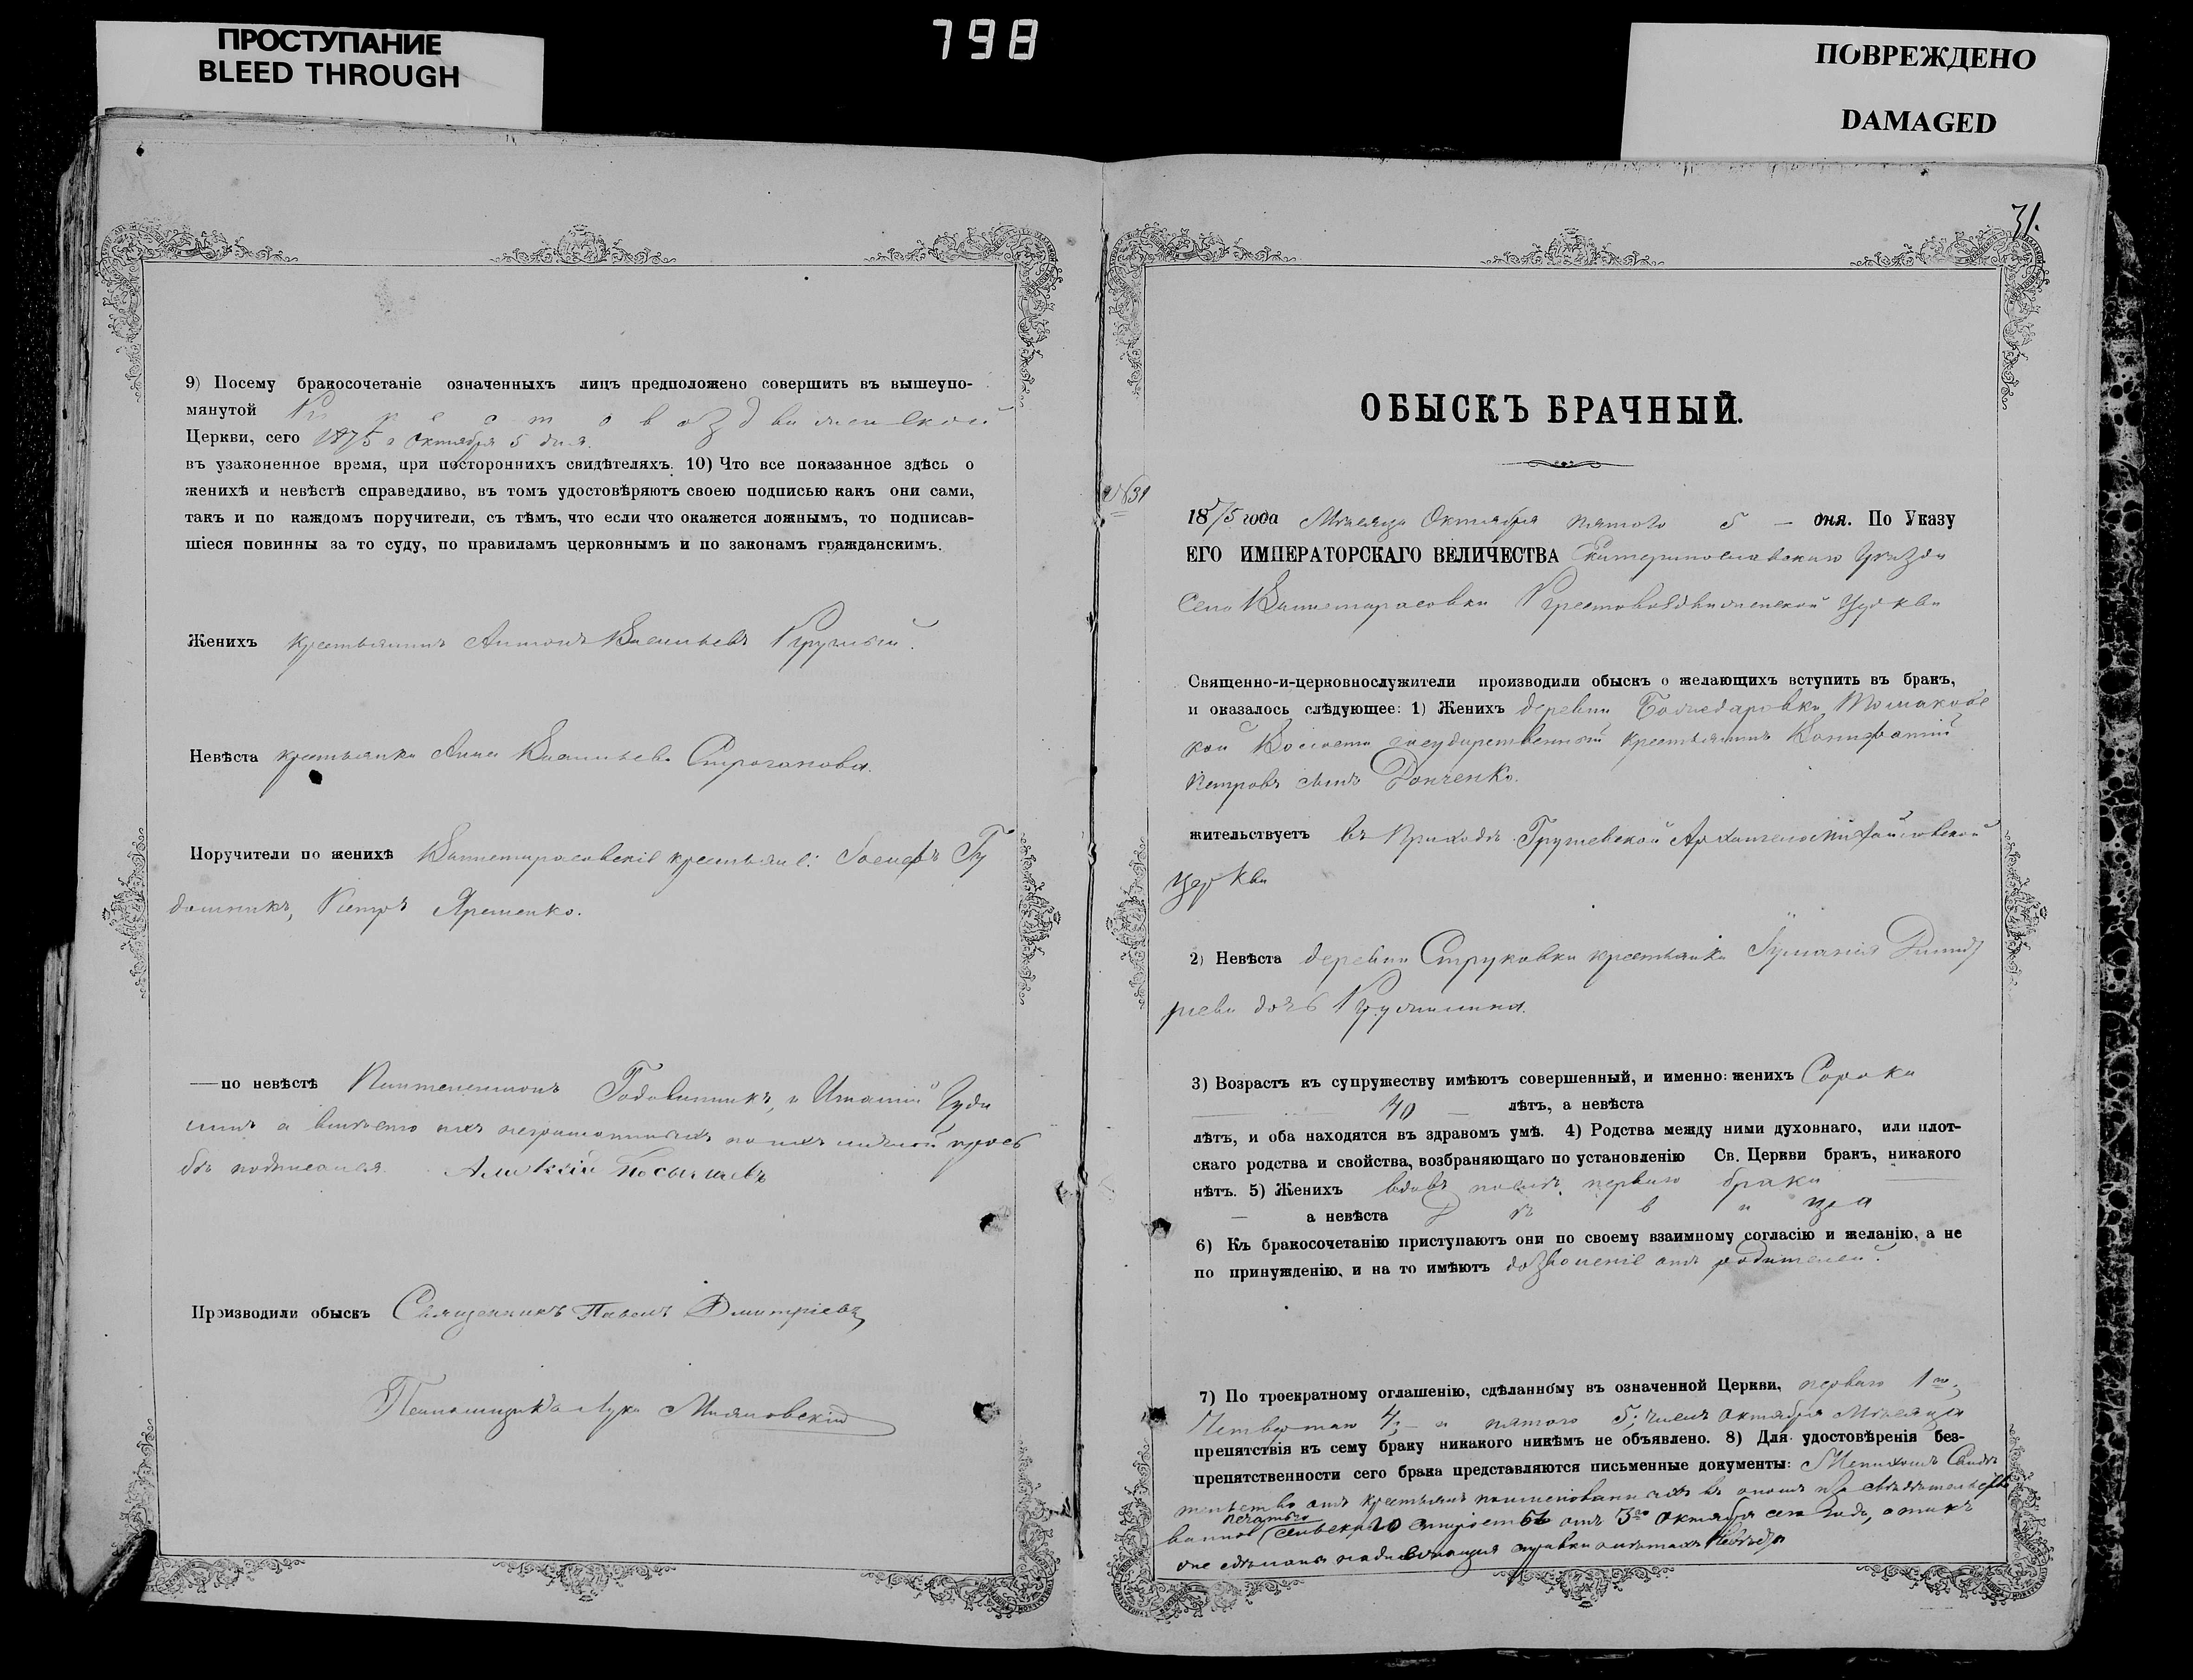 ПРОСТУПАНИЕ
BLEED THROUGH
798
ПОВРЕЖДЕНО
DAMAGED
9) Посему бракосочетаніе означенныхъ лицъ предположено совершить въ вышеупо-
мянутой Крестовоздвиженской
Церкви, сего 1875 г Октября 5 дня.
въ узаконенное время, при постороннихъ свидѣтеляхъ. 10) Что все показанное здѣсь о
женихѣ и невѣстѣ справедливо, въ томъ удостовѣряютъ своею подписью какъ они сами,
такъ и по каждомъ поручители, съ тѣмъ, что если что окажется ложнымъ, то подписав-
шіеся повинны за то суду, по правиламъ церковнымъ и по законамъ гражданскимъ.
Женихъ крестьянинъ Антонъ Васильевъ
Невѣста крестьянка Анна Васильева Строганова.
Поручители по женихѣ крестьяне: Іосифъ Гу
Петръ Яременко.
—по невѣстѣ Годованникъ, и Игнатій
а вмѣсто ихъ неграмотныхъ по ихъ личной прось
бѣ подписался Алексій Посыпаевъ
Производили обыскъ Священникъ Павелъ Дмитріевъ
Псаломщикъ Лука
31.
ОБЫСКЪ БРАЧНЫЙ.
№31
1875 года Мѣсяца Октября пятого 5 — дня. По Указу
ЕГО ИМПЕРАТОРСКАГО ВЕЛИЧЕСТВА Екатеринославскаго Уѣзда
Села Вышетарасовки Крестовоздвиженской Церкви
Священно-и-церковнослужители производили обыскъ о желающихъ вступить въ бракъ,
и оказалось слѣдующее: 1) Женихъ деревни Божедаровки, Томаковс
кой Волости государственный крестьянинъ Конифатій
Петровъ сынъ Донченко.
жительствуетъ въ Приходѣ Грушевской Архангеломихайловской
церкви
2) Невѣста деревни Струковки крестьянка Іуліанія Димит
ріева дочь
3) Возрастъ къ супружеству имѣютъ совершенный, и именно: женихъ Сорока
40 лѣтъ, а невѣста
лѣтъ, и оба находятся въ здравомъ умѣ. 4) Родства между ними духовнаго, или плот-
скаго родства и свойства, возбраняющаго по установленію Св. Церкви бракъ, никакого
нѣтъ. 5) Женихъ вдовъ послѣ перваго брака
— а невѣста Дѣвица
6) Къ бракосочетанію приступаютъ они по своему взаимному согласію и желанію, а не
по принужденію, и на то имѣютъ дозволеніе отъ родителей.
7) По троекратному оглашенію, сдѣланному въ означенной Церкви, перваго 1го,
Четвертаго 4, и пятого 5, числъ Октября Мѣсяца
препятствія къ сему браку никакого никѣмъ не объявлено. 8) Для удостовѣренія без-
препятственности сего брака представляются письменные документы: Женихомъ Свидѣ
тельство отъ крестьянъ поименованныхъ въ ономъ
печатью
сельскаго отъ 3го Октября сего года, а также